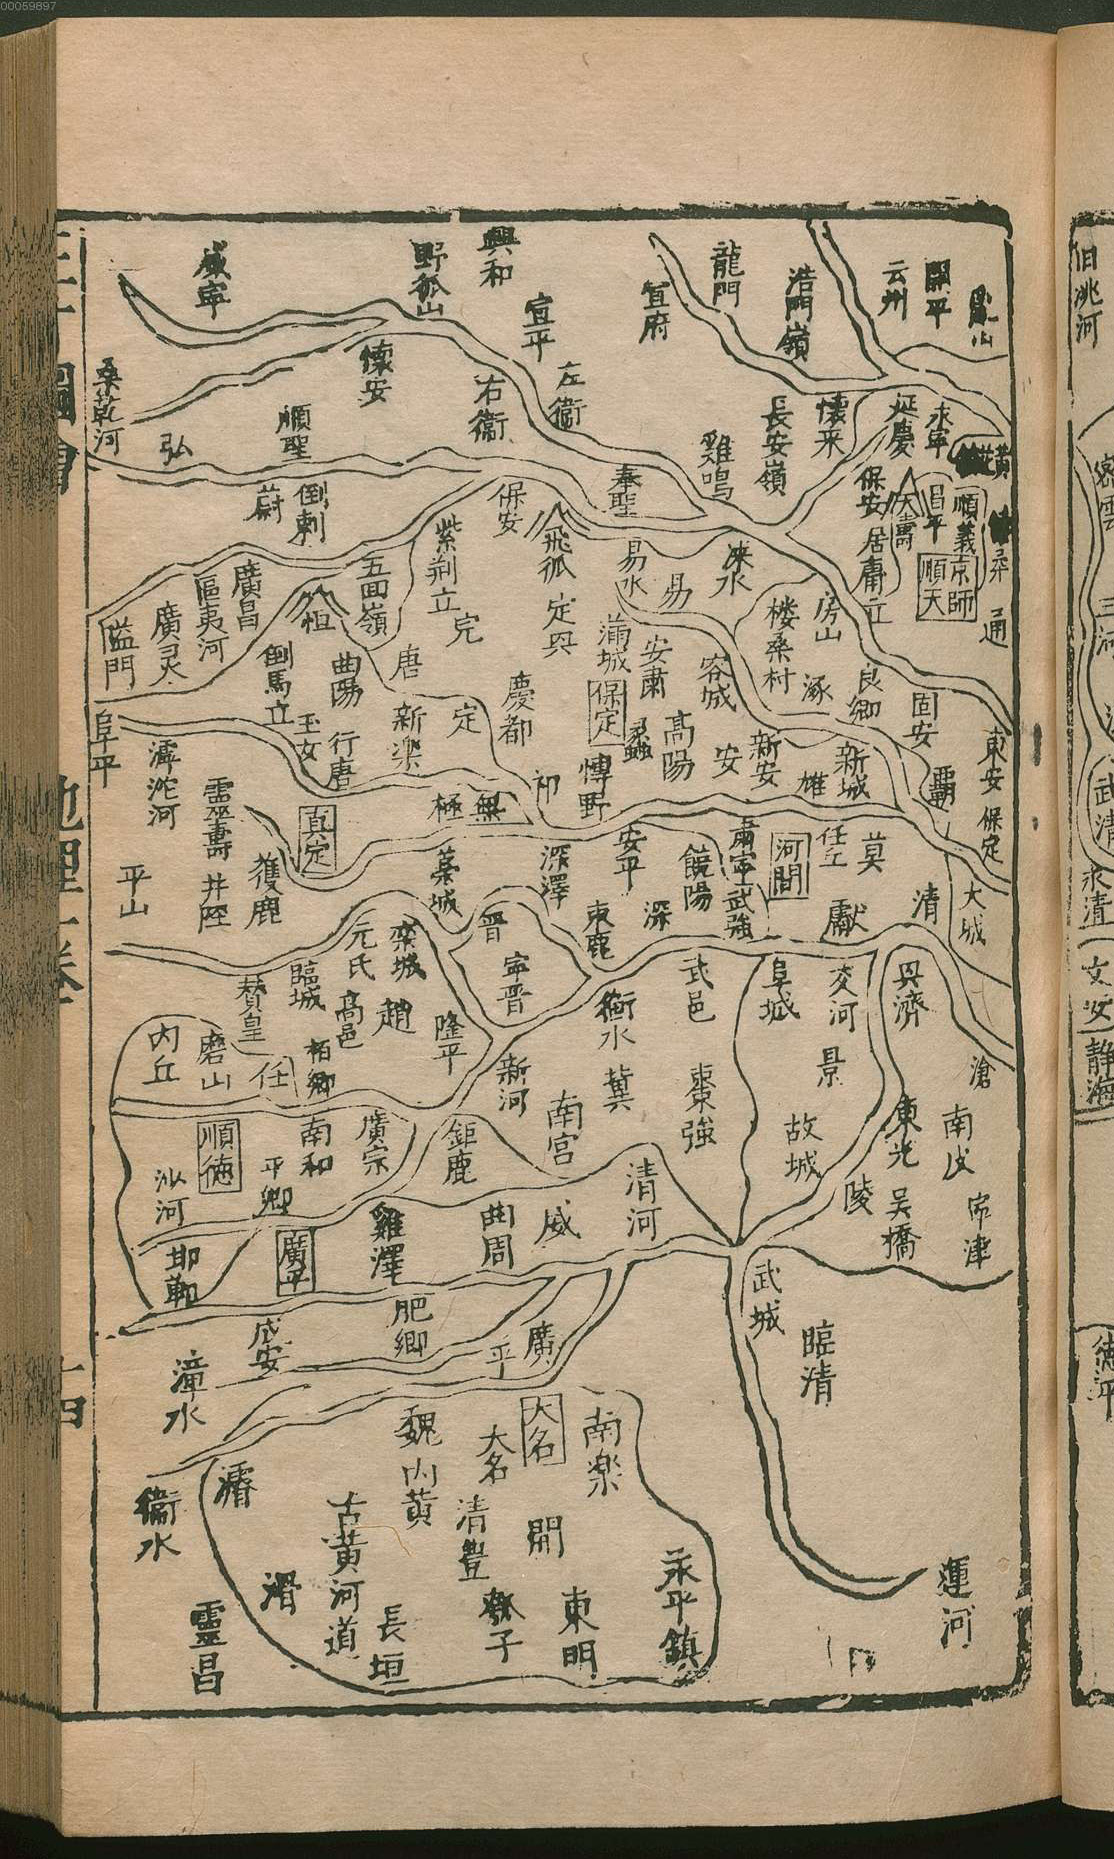 00059897
旧洮河
密雲
三河
武清
永清
文安
静海
德平
開平
云州
浩門嶺
龍門
宣府
興和
宣平
野狐山
咸寧
永寧
延慶
懷来
長安嶺
雞鳴
左衞
右衞
懷安
順聖
弘
桑乾河
順義
京師
順天
昌平
天壽
保安
居庸立
奉聖
保安
倒剌
蔚
通
房山
楼桑村
涞水
易
易水
飛狐
定興
紫荆立
完
五囬嶺
恒
廣昌
漚夷河
廣灵
隘門
固安
良郷
涿
容城
安肅
蒲城
保定
蠡
慶都
唐
曲陽
倒馬立
東安
保定
霸
新城
雄
新安
安
高陽
博野
祁
定
新楽
行唐
玉女
阜平
滹沱河
靈壽
真定
無極
大城
清
莫
任丘
河間
獻
肅寧
武強
饒陽
安平
深
深澤
束鹿
藁城
晋
獲鹿
井陘
平山
滄
興濟
交河
阜城
武邑
衡水
寧晋
欒城
元氏
趙
高邑
臨城
賛皇
隆平
柏郷
任
磨山
内丘
南皮
東光
景
故城
棗強
冀
南宮
新河
鉅鹿
廣宗
南和
平郷
順德
沙河
宁津
吴橋
陵
清河
威
曲周
雞澤
廣平
邯鄲
武城
臨清
廣平
肥郷
成安
漳水
南楽
大名
大名
魏
内黄
濬
衞水
開
清豐
古黄河道
滑
永平鎮
東明
長垣
靈昌
運河
地理一卷
十四